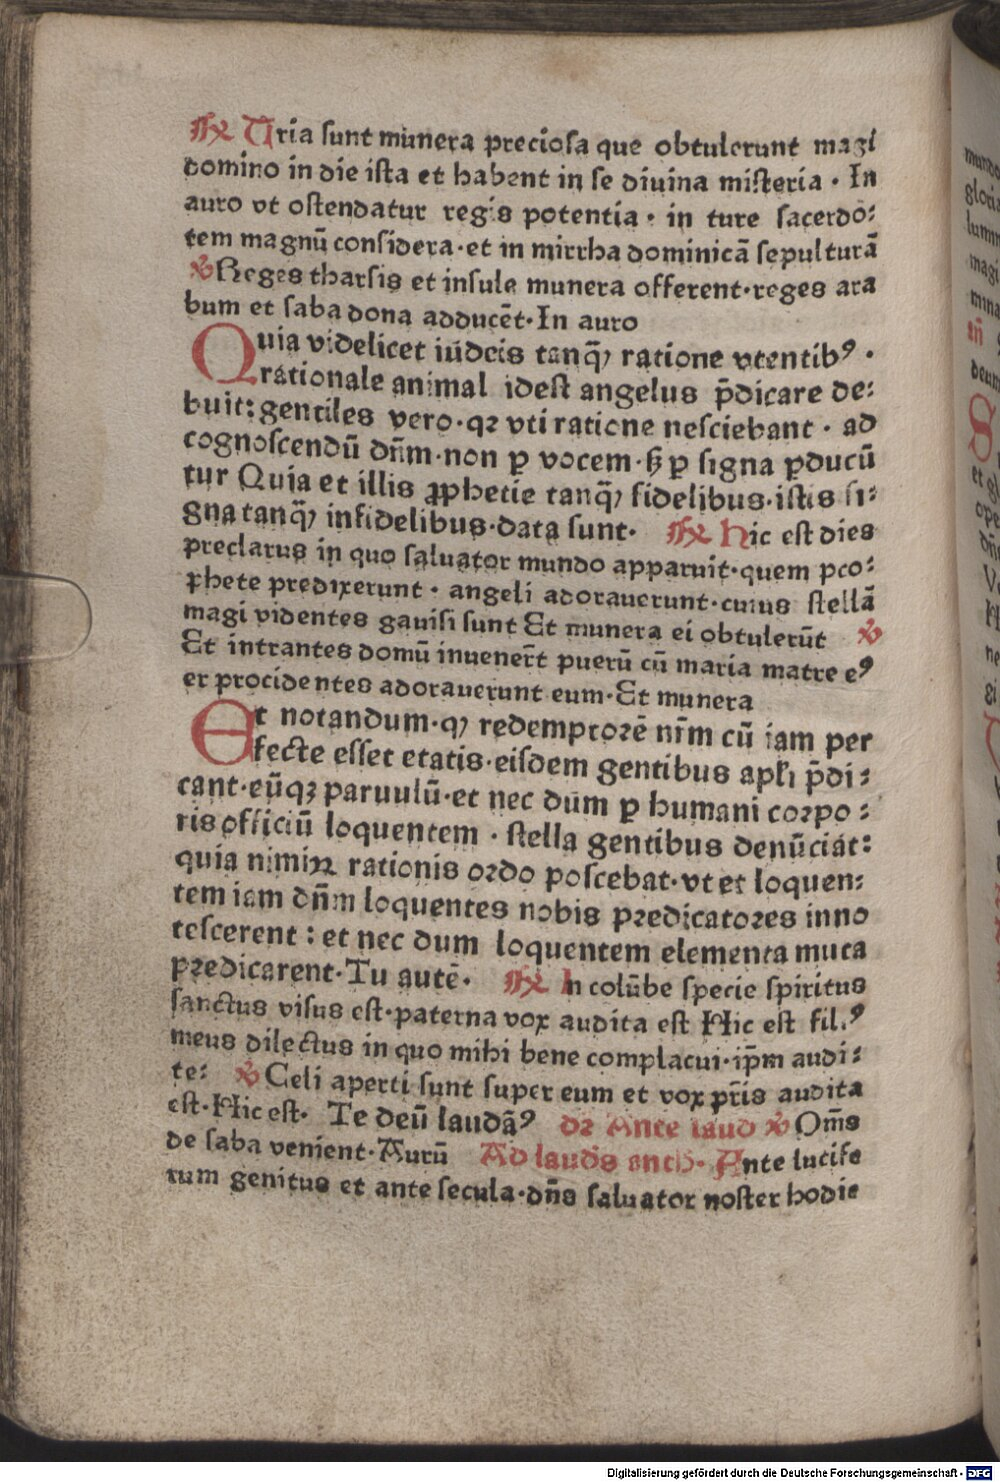 ℟ Tria sunt munera preciosa que obtulerunt magi
domino in die ista et habent in se diuina misteria · In
auro vt ostendatur regis potentia · in ture sacerdo:
tem magnū considera · et in mirrha dominicā sepulturā
℣ Reges tharsis et insule munera offerent · reges ara
bum et saba dona adducēt · In auro
Quia videlicet iūdeis tanq̄ꝫ ratione vtentibꝰ ·
rationale animal idest angelus p̄dicare de:
buit: gentiles vero · qꝛ vti ratione nesciebant · ad
cognoscendū dn̄m · non ꝑ vocem · sꝫ ꝑ signa ꝑducū
tur Quia et illis ꝓphetie tanq̄ꝫ fidelibus · istis si:
gna tanq̄ꝫ infidelibus · data sunt · ℟ Hic est dies
preclarus in quo saluator mundo apparuit · quem pro:
phete predixerunt · angeli adorauerunt · cuius stellā
magi videntes gauisi sunt Et munera ei obtulerūt ℣
Et intrantes domū inuener̄t puerū cū maria matre eꝰ
et procidentes adorauerunt eum · Et munera
Et notandum · qꝫ redemptorē nr̄m cū iam per
fecte esset etatis · eisdem gentibus apl̄i p̄di:
cant · eūqꝫ paruulū · et nec dum ꝑ humani corpo:
ris officiū loquentem · stella gentibus denūciat:
quia nimiꝝ rationis ordo poscebat · vt et loquen:
tem iam dn̄m loquentes nobis predicatores inno
tescerent: et nec dum loquentem elementa muta
predicarent · Tu autē · ℟ In colūbe specie spiritus
sanctus visus est · paterna vox audita est Hic est filꝰ
meus dilectus in quo mihi bene complacui · ip̄m audi:
te: ℣ Celi aperti sunt super eum et vox pr̄is audita
est · Hic est · Te deū laudāꝰ dꝛ Ante laud ℣ Om̄s
de saba venient · Aurū Ad laudes anth · Ante lucife
rum genitus et ante secula · dn̄s saluator noster hodie
Digitalisierung gefördert durch die Deutsche Forschungsgemeinschaft - DFG